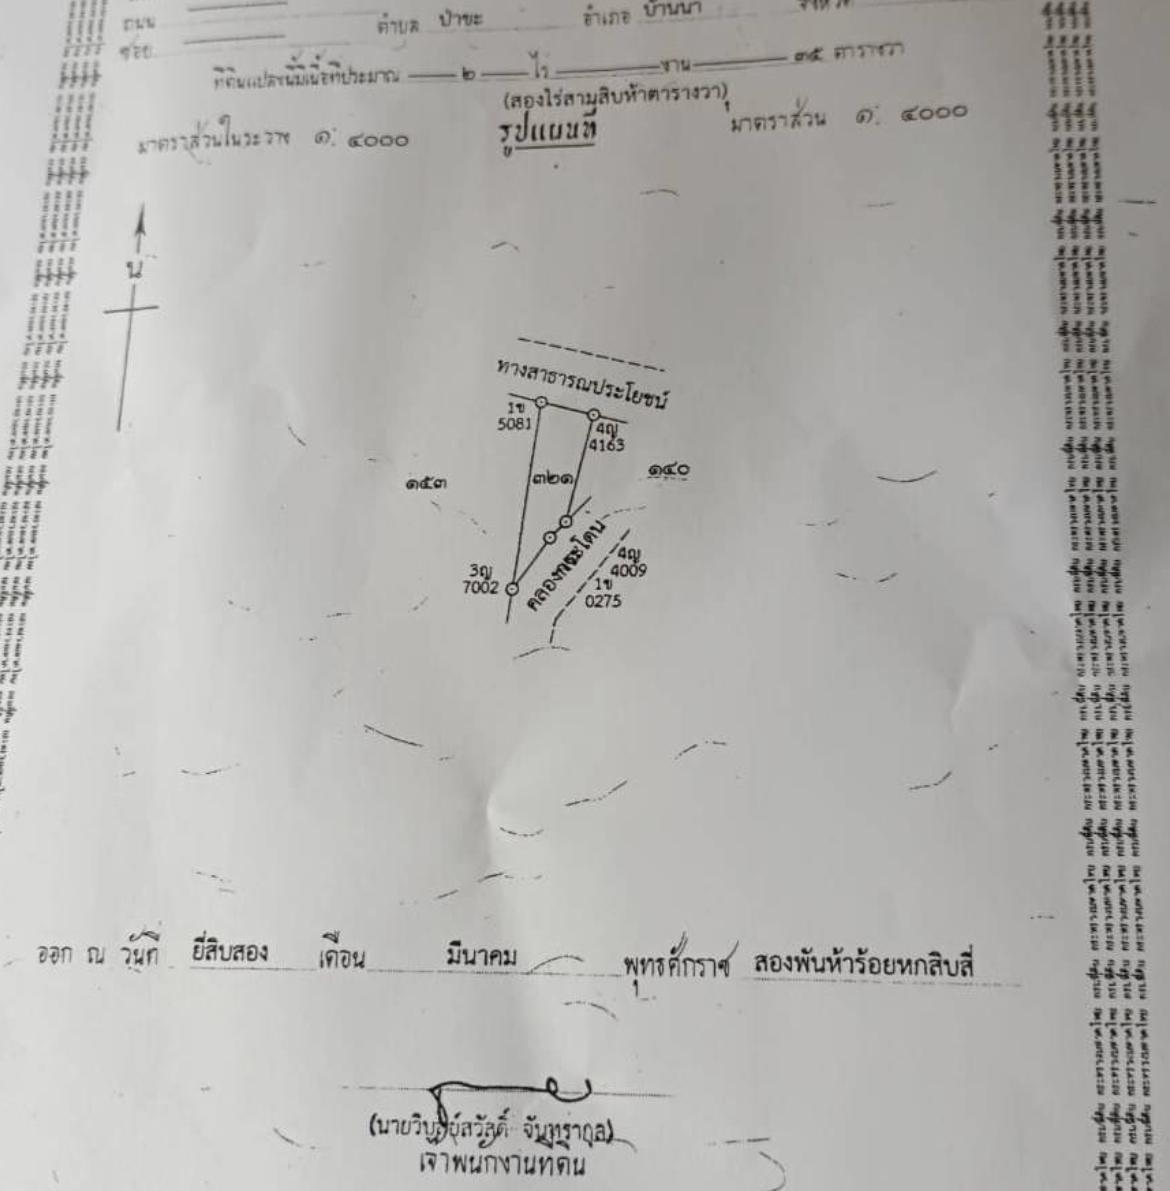 ถนน ตำบล ป่าขะ อำเภอ บ้านนา จังหวัด
ซอย
ที่ดินแปลงนี้มีเนื้อที่ประมาณ ๒ ไร่ งาน ๓๕ ตารางวา
(สองไร่สามสิบห้าตารางวา)
มาตราส่วนในระวาง ๑: ๔๐๐๐ รูปแผนที่ มาตราส่วน ๑: ๔๐๐๐
น
ทางสาธารณประโยชน์
1ข
5081
4ญ
4163
๑๕๓
๓๒๑
๑๔๐
3ญ
7002
คลองกระโดน
4ญ
4009
1ข
0275
ออก ณ วันที่ ยี่สิบสอง เดือน มีนาคม พุทธศักราช สองพันห้าร้อยหกสิบสี่
(นายวิบูลย์สวัสดิ์ จันทรากุล)
เจ้าพนักงานที่ดิน